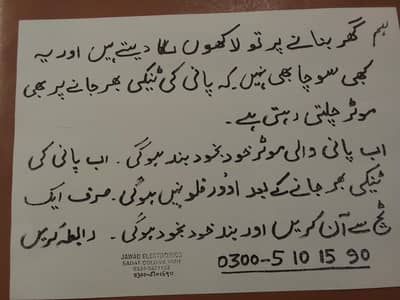 ہم گھر بنانے پر تو لاکھوں لگا دیتے ہیں اور یہ
کبھی سوچا بھی نہیں کہ پانی کی ٹینکی بھر جانے پر بھی
موٹر چلتی رہتی ہے۔
اب پانی والی موٹر خود بخود بند ہوگی۔ اب پانی کی
ٹینکی بھر جانے کے بعد اوور فلو نہیں ہوگی۔ صرف ایک
ٹچ سے آن کریں اور بند خود بخود ہوگی۔ رابطہ کریں
JAWAD ELECTRONICS
0300-5 10 15 90